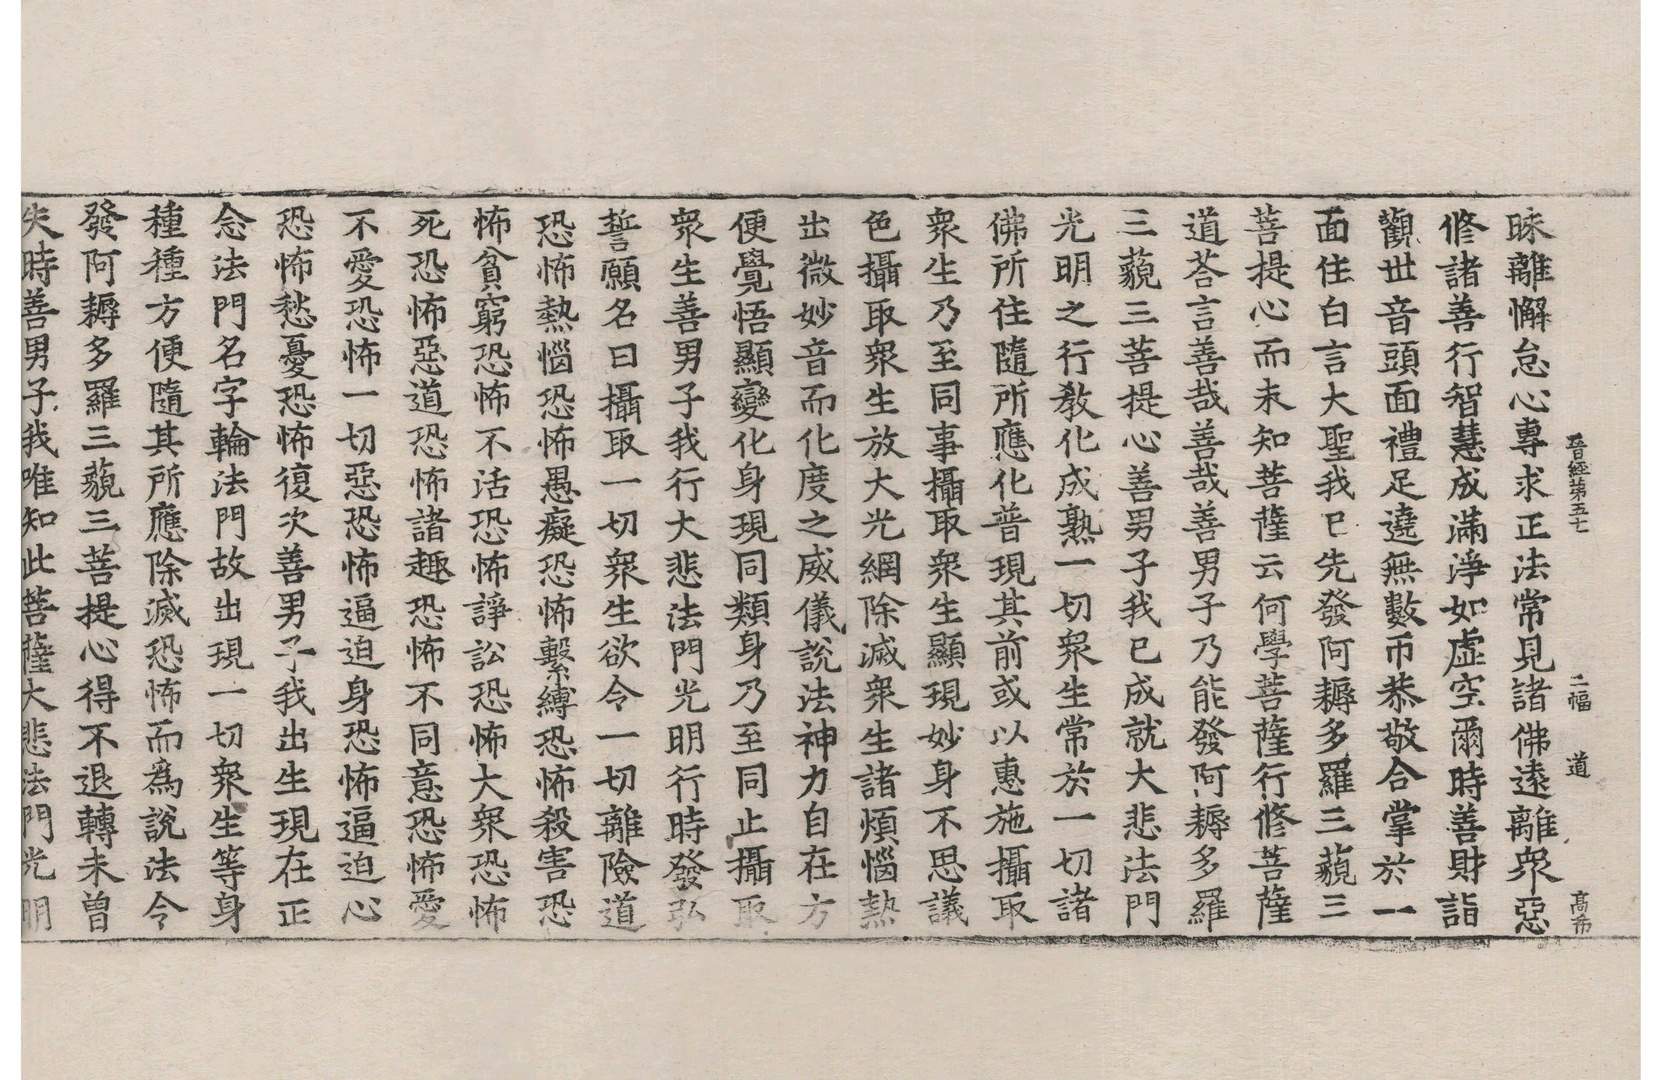 晉經第五七　二幅　道　高希
睐離懈怠心專求正法常見諸佛遠離衆惡
修諸善行智慧成滿淨如虛空爾時善財詣
觀世音頭面禮足遶無數帀恭敬合掌於一
面住白言大聖我已先發阿耨多羅三藐三
菩提心而未知菩薩云何學菩薩行修菩薩
道荅言善哉善哉善男子乃能發阿耨多羅
三藐三菩提心善男子我已成就大悲法門
光明之行教化成熟一切衆生常於一切諸
佛所住隨所應化普現其前或以惠施攝取
衆生乃至同事攝取衆生顯現妙身不思議
色攝取衆生放大光網除滅衆生諸煩惱熱
出微妙音而化度之威儀說法神力自在方
便覺悟顯變化身現同類身乃至同止攝取
衆生善男子我行大悲法門光明行時發弘
誓願名曰攝取一切衆生欲令一切離險道
恐怖熱惱恐怖愚癡恐怖繫縛恐怖殺害恐
怖貧窮恐怖不活恐怖諍訟恐怖大衆恐怖
死恐怖惡道恐怖諸趣恐怖不同意恐怖愛
不愛恐怖一切惡恐怖逼迫身恐怖逼迫心
恐怖愁憂恐怖復次善男子我出生現在正
念法門名字輪法門故出現一切衆生等身
種種方便隨其所應除滅恐怖而爲說法令
發阿耨多羅三藐三菩提心得不退轉未曾
失時善男子我唯知此菩薩大悲法門光明